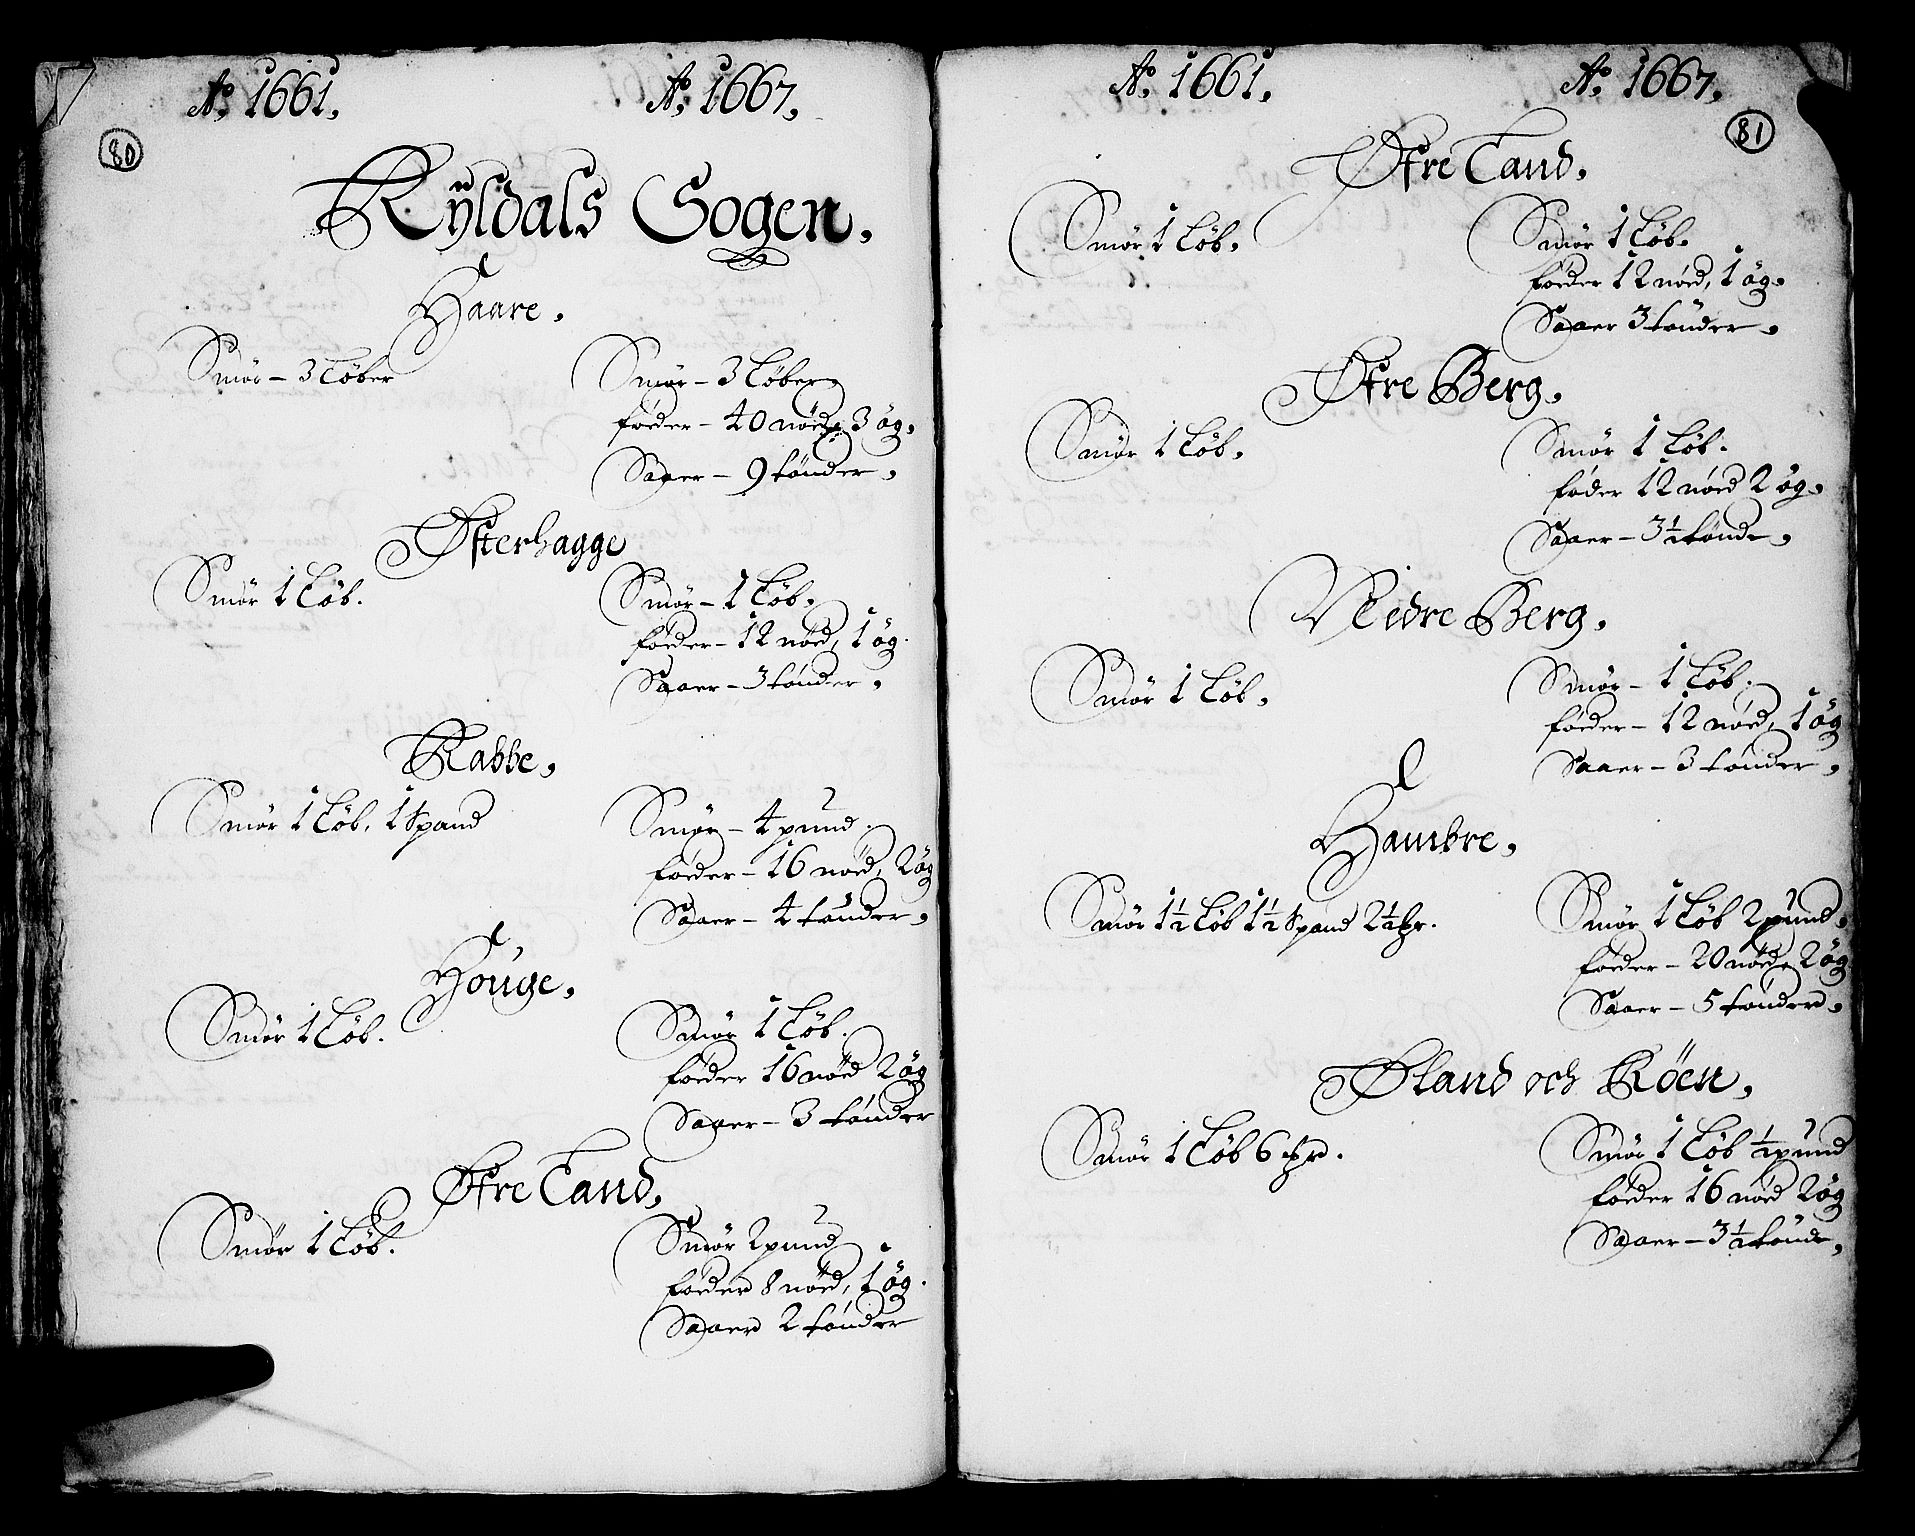 Ao. 1661. Ao. 1667.
80
Ryldals Sogen.
Haare.
Smör - 3 Löber
Smör - 3 Löber.
föeder - 40 nöed, 3 ög.
Saaer - 9 tönder.
Østerhagge
Smör 1 Löb.
Smör - 1 Löb.
föeder - 12 nöed, 1 ög.
Saaer - 3 tönder.
Rabbe.
Smör 1 Löb, 1 Spand
Smör - 4 pund.
föeder - 16 nöed, 2 ög
Saaer - 4 tönder.
Houge.
Smör 1 Löb.
Smör 1 Löb.
föeder 16 nöed 2 ög
Saaer - 3 tönder
Øfre Tand.
Smör 1 Löb.
Smör 2 pund
föeder 8 nöed, 1 ög.
Saaer 2 tönder
Ao. 1661. Ao. 1667.
81
Øfre Tand.
Smör 1 Löb.
Smör 1 Löb.
föeder 12 nöed, 1 ög.
Saaer 3 tönder.
Øfre Berg.
Smör 1 Löb.
Smör 1 Löb.
föder 12 nöed 2 ög.
Saaer - 3½ tönde.
Neidre Berg.
Smör 1 Löb.
Smör - 1 Löb.
föeder - 12 nöed, 1 ög
Saaer - 3 tönder.
Hambre.
Smör 1½ Löb 1½ Spand 2½ Hr.
Smör 1 Löb 2 pund.
föeder - 20 nöed, 2 ög.
Saaer - 5 tönder.
Øland och Röen.
Smör 1 Löb 6 Hr.
Smör 1 Löb ½ pund
föeder 16 nöed 2 ög
Saaer - 3½ tönde.